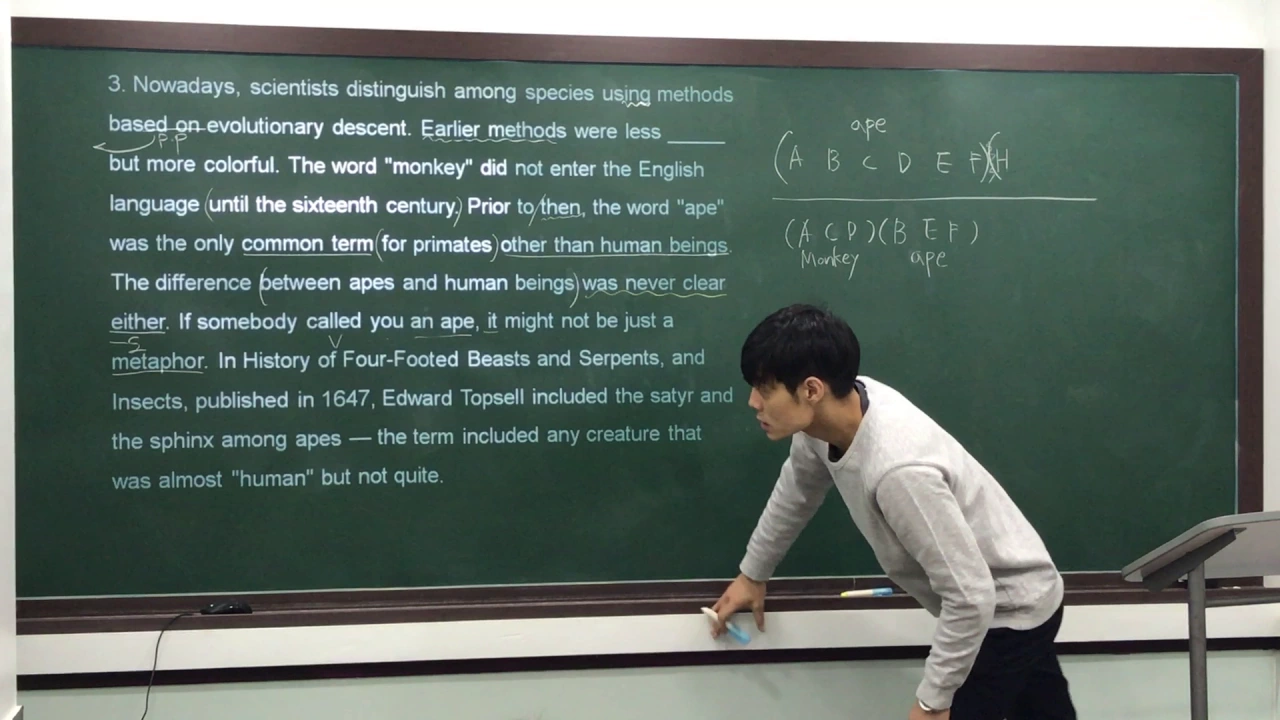 3. Nowadays, scientists distinguish among species using methods
based on evolutionary descent. Earlier methods were less ____
p.p
but more colorful. The word "monkey" did not enter the English
language (until the sixteenth century.) Prior to/then, the word "ape"
was the only common term (for primates) other than human beings.
The difference (between apes and human beings) was never clear
either. If somebody called you an ape, it might not be just a
metaphor. In History of Four-Footed Beasts and Serpents, and
Insects, published in 1647, Edward Topsell included the satyr and
the sphinx among apes — the term included any creature that
was almost "human" but not quite.
ape
(A B C D E F) H
(A C D) (B E F)
Monkey ape